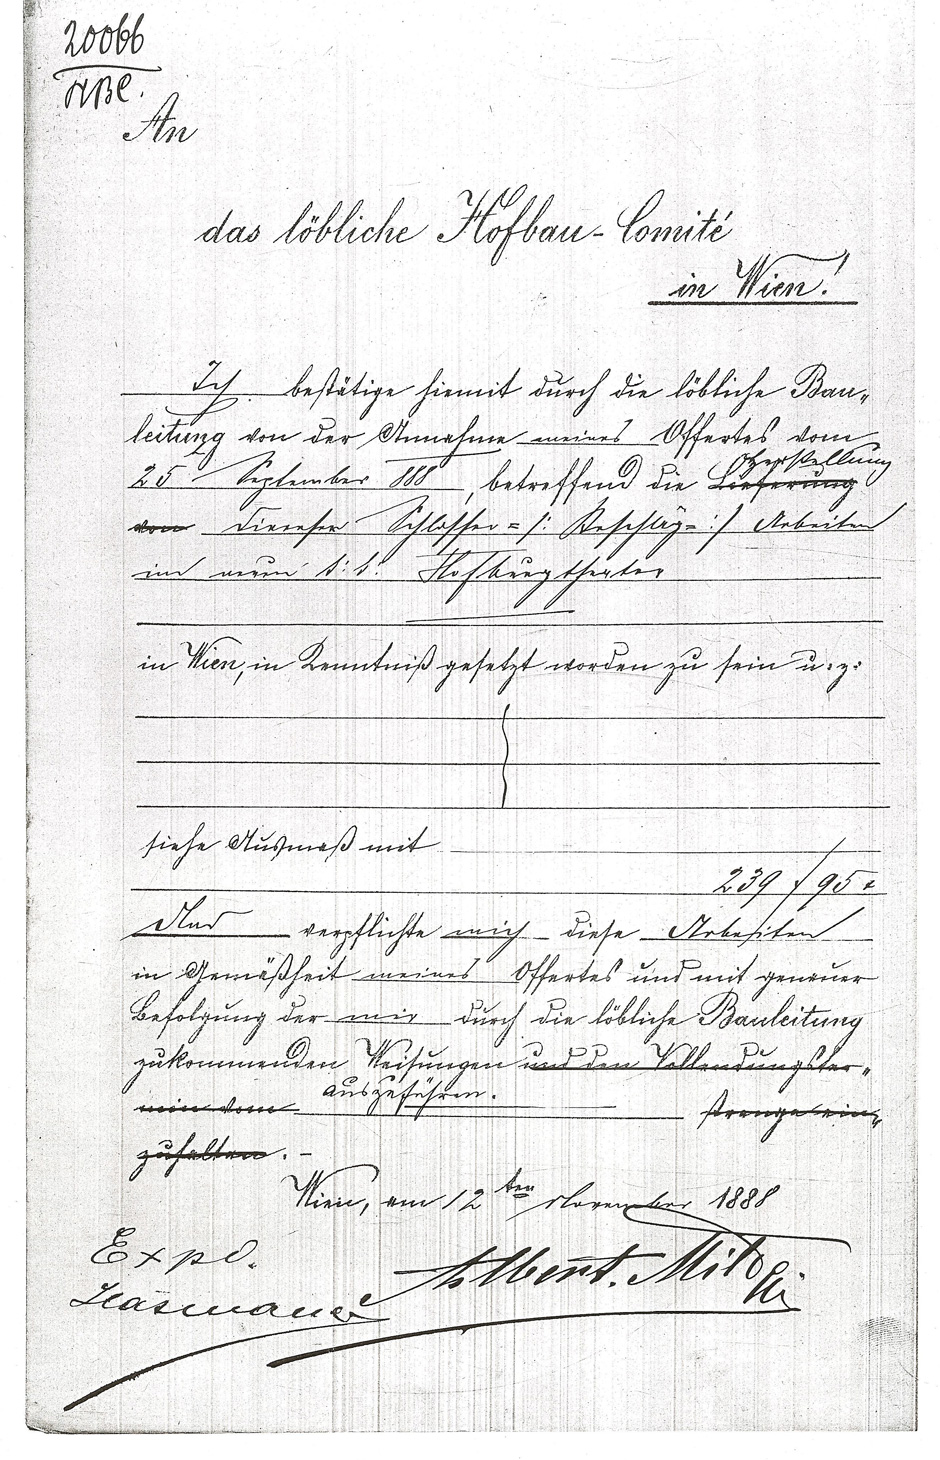 20066
HBC.
An
das löbliche Hofbau-Comité
in Wien!
Ich bestätige hiemit durch die löbliche Bau„
leitung von der Annahme meines Offertes vom
25 September 888, betreffend die Lieferung
Herstellung
von diverser Schlosser= /: Beschläg= :/ Arbeiten
im neuen k: k: Hofburgtheater
in Wien, in Kenntniß gesetzt worden zu sein u: z:
siehe Ausmaß mit
239 f 95 x
Und verpflichte mich diese Arbeiten
in Gemäßheit meines Offertes und mit genauer
Befolgung der mir durch die löbliche Bauleitung
zukommenden Weisungen und den Vollendungster„
min vom auszuführen. strenge ein„
zuhalten. –
Wien, am 12ten November 1888
Expd.
Albert Milde